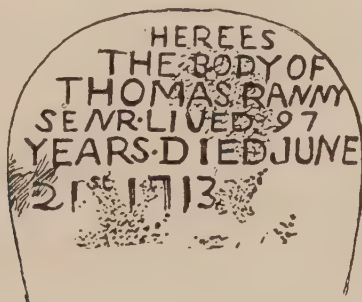 HEREES
THE BODY OF
THOMAS RANNY
SENR·LIVED 97
YEARS·DIED JUNE
21ST 1713